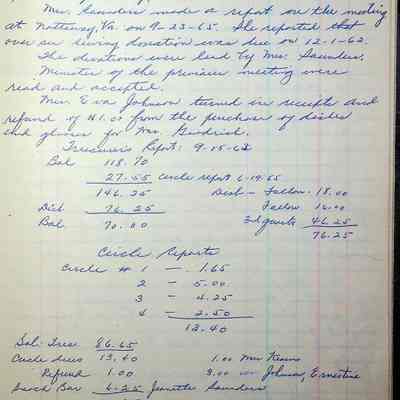 Mrs. Saunders made a report on the meeting
at Nottoway, Va. on 9-23-65. She reported that
over on living donation was due on 12-1-62.
The devotions were lead by Mrs. Saunders.
Minutes of the previous meeting were
read and accepted.
Mrs. Eva Johnson turned in receipts and
refund of $1.00 from the purchase of dishes
and glasses for Mrs. Goodrich.
Treasurer's Report: 9-15-65
Bal 118.70
27.55 Circle report 6-19-65
146.25 Dist - Fallow. 18.00
Disb 76.25 Fallow 12.00
Bal 70.00 46.25
76.25
Circle Reports
Circle # 1 — 1.65
2 — 5.00
3 — 4.25
4 — 2.50
13.40
Bal. Trea. 86.65
Circle dues 13.40 1.00 Mrs
Refund 1.00 3.00 Johnson, Ernestine
6.25 Jeanette Saunders